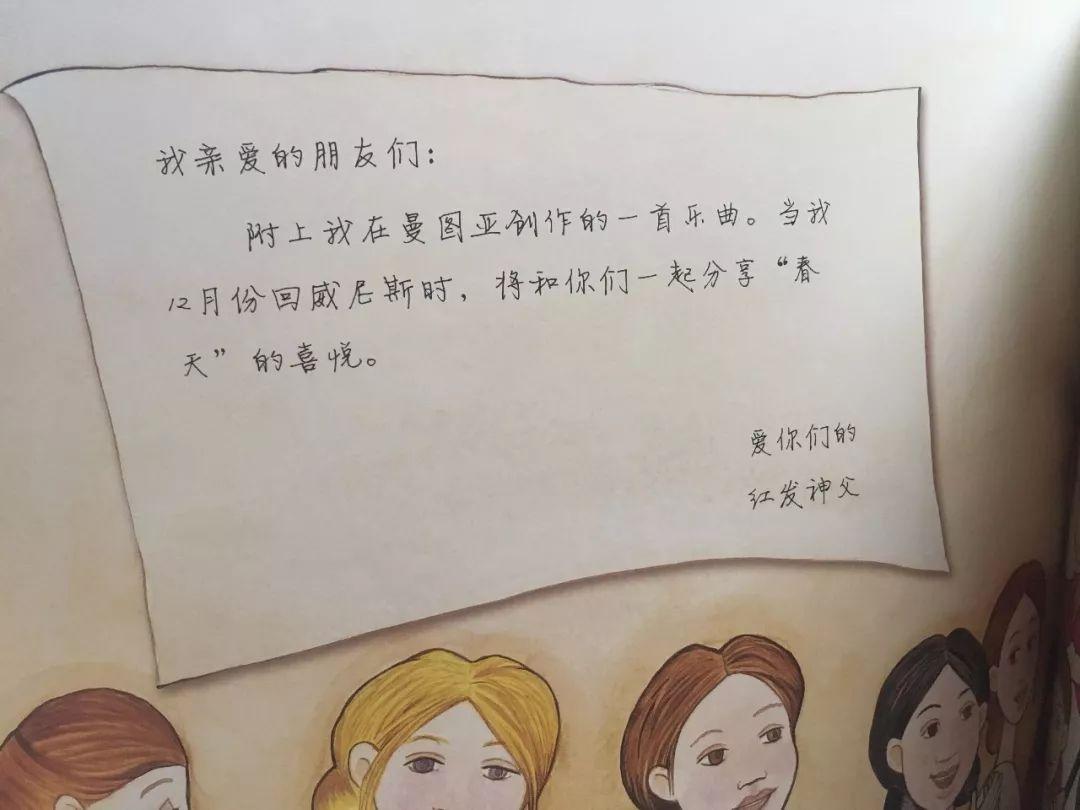 我亲爱的朋友们：
附上我在曼图亚创作的一首乐曲。当我
12月份回威尼斯时，将和你们一起分享“春
天”的喜悦。
爱你们的
红发神父